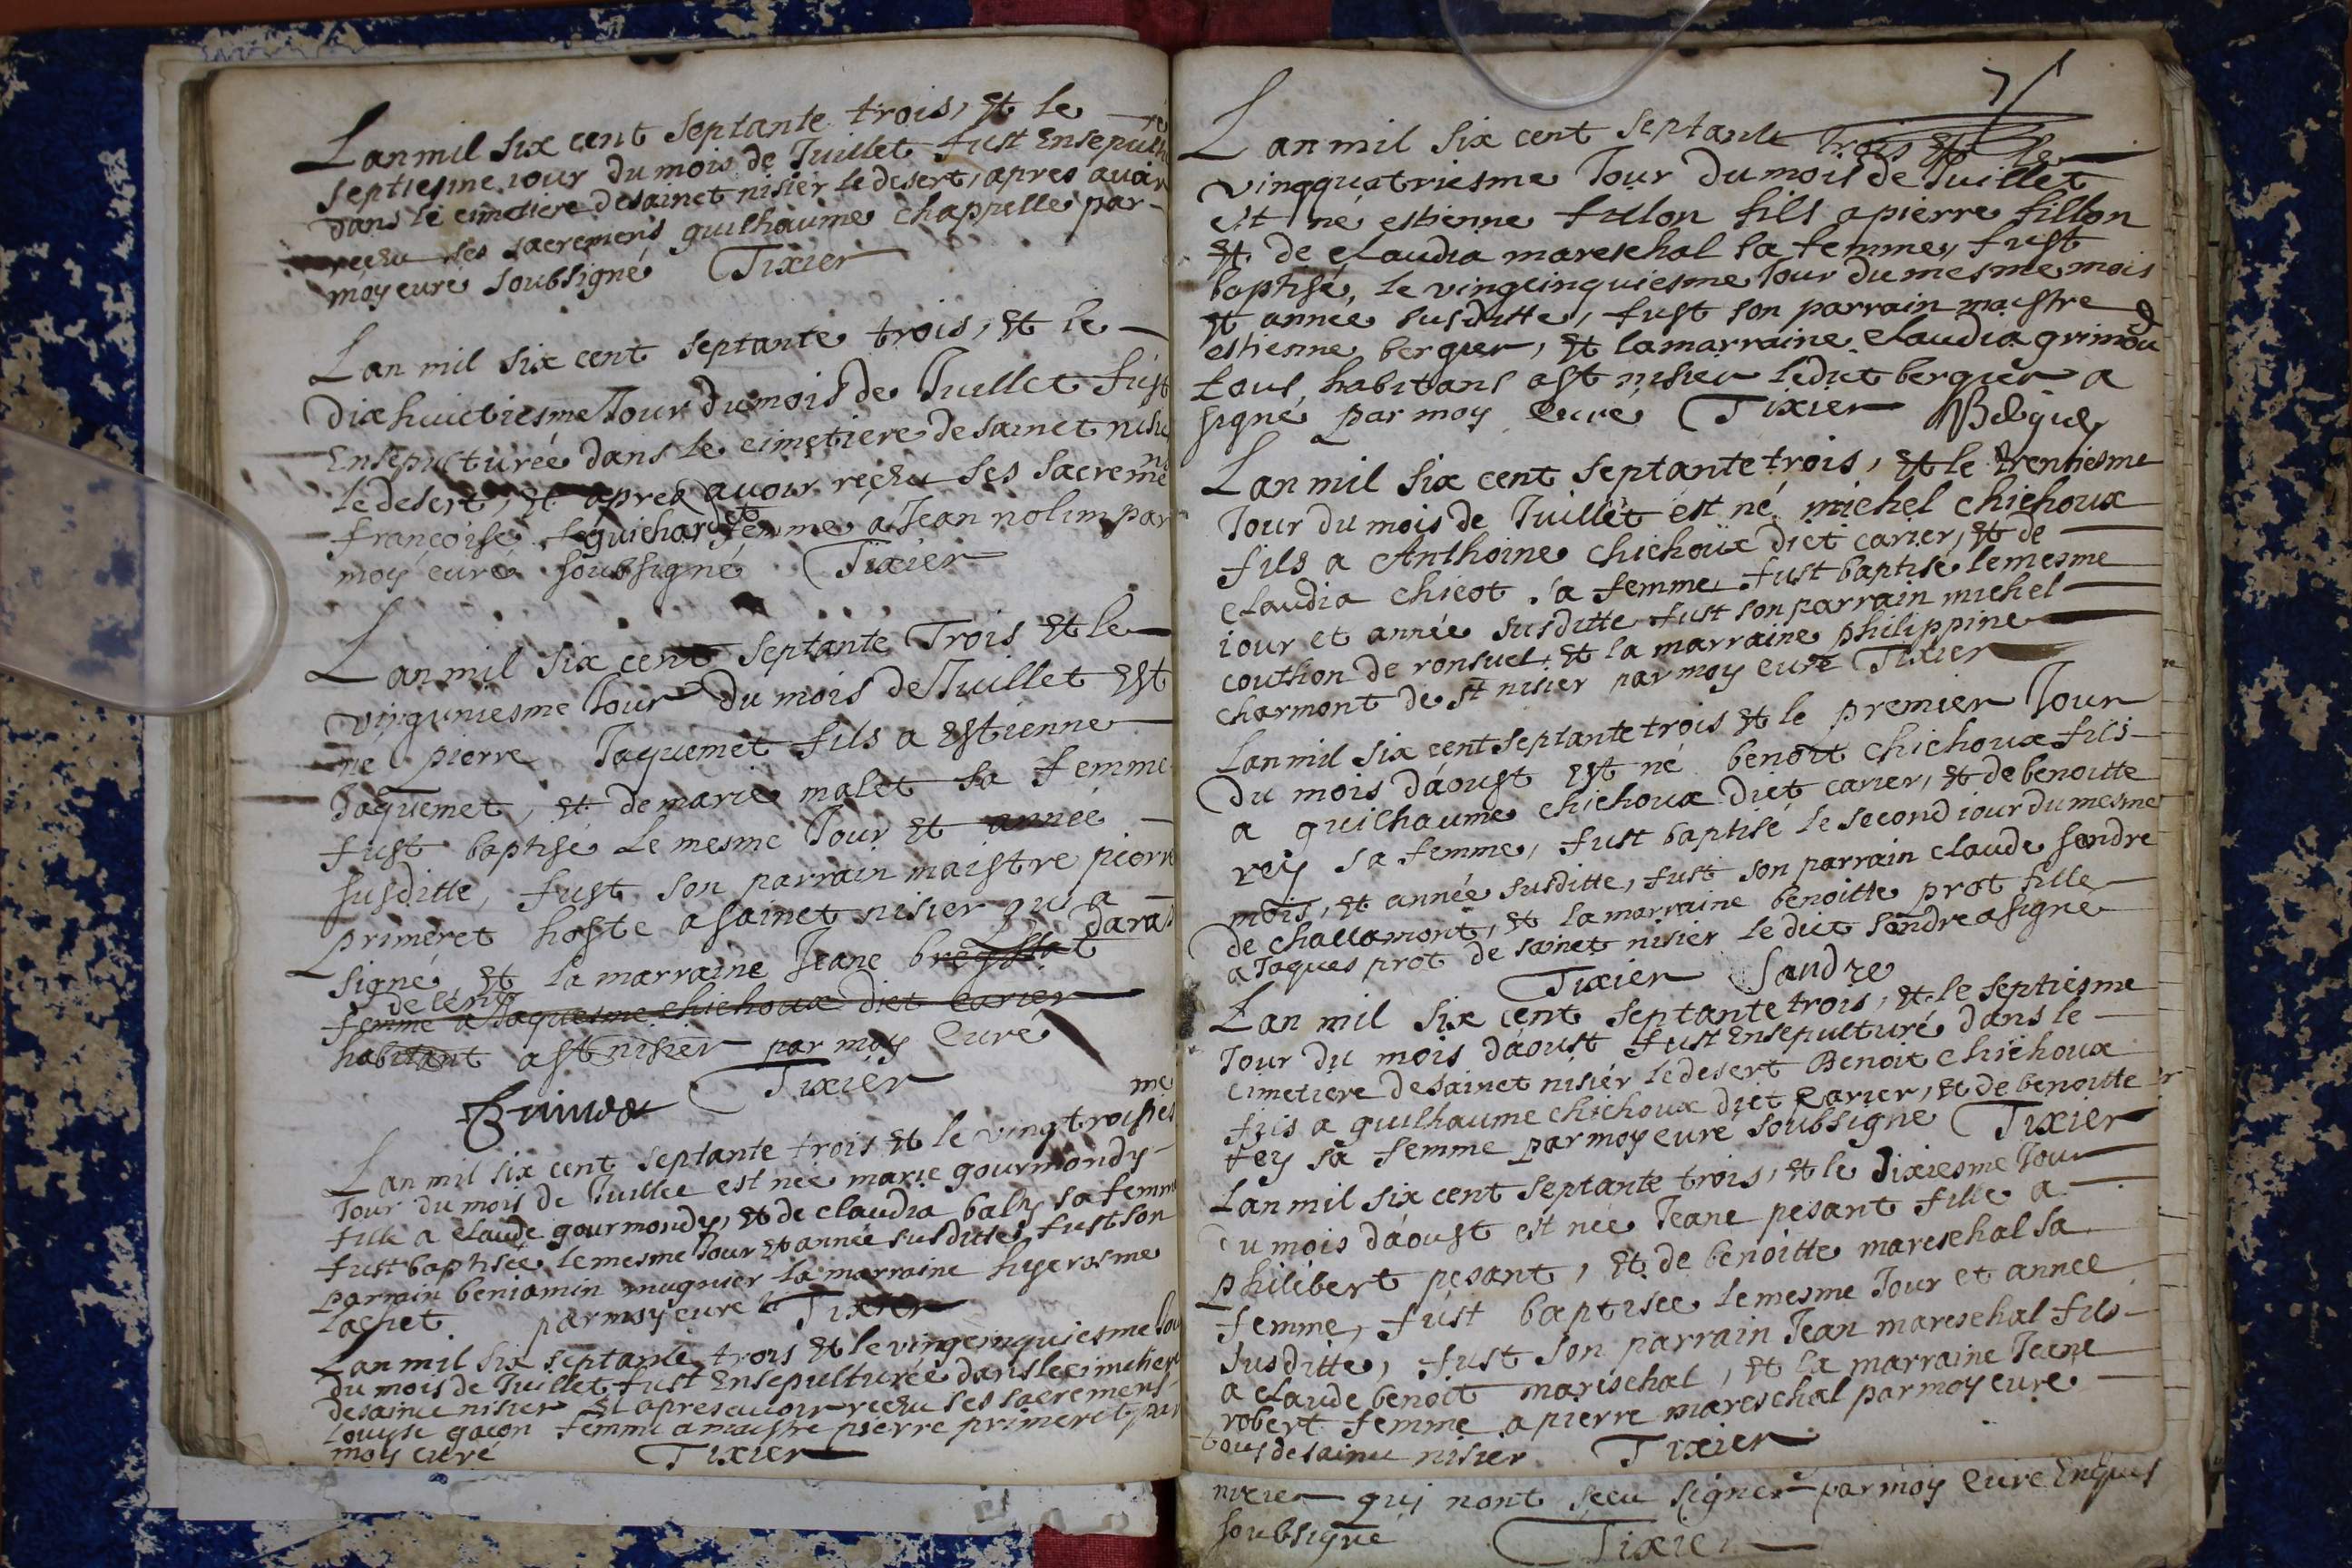 Lan mil six cent septante trois, et le
septiesme iour du mois de Juillet fust Ensepulturé
dans le cimetiere de sainct nisier le desert, apres auoir
reçeu ses sacremens guilhaume chappelle par
moy curé soubsigné Tixier
Lan mil six cent septante trois, et le
dix huictiesme Jour du mois de Juillet fust
Ensepulturée dans le cimetiere de sainct nisier
le desert, et apres auoir reçeu ses sacremens
françoise guichardet femme a Jean nolim par
moy curé soubsigné Tixier
Lan mil six cent septante Trois et le
vinguniesme Jour du mois de Juillet Est
né pierre Jaquemet fils a Estienne
Jaquemet, et de marie malet sa femme
fust baptisé le mesme Jour et année
susditte, fust son parrain maistre pierre
primeret hoste a sainct nisier qui a
signé et la marraine Jeane
femme a Jaquesme chichoux diet carier
habitant a st nisier par moy Curé
Tixier
Lan mil six cent septante trois et le vingtroisiesme
Jour du mois de Juillet est née marie gourmondy
fille a claude gourmondy, et de claudia balty sa femme
fust baptisée le mesme Jour et année susditte, fust son
parrain beniamin mugnier la marraine hyerosme
lachet par moy curé Tixier
Lan mil six septante trois et le vingcinquiesme Jour
du mois de Juillet fust Ensepulturée dans le cimetiere
de sainct nisier et apres auoir reçeu ses sacremens
louyse gacon femme a maistre pierre primeret, par
moy curé Tixier
71
Lan mil six cent septante trois et le
vingquatriesme Jour du mois de Juillet
est né estienne fillon fils a pierre fillon
et de claudia mareschal sa femme, fust
baptisé, le vingcinquiesme Jour du mesme mois
et année susditte, fust son parrain maistre
estienne bergier, et la marraine claudia grimod
tous habitans a st nisier ledict bergier a
signé par moy Curé Tixier
Lan mil six cent septante trois, et le trentiesme
Jour du mois de Juillet est né michel chichoux
fils a Anthoine chichoux diet carier, et de
claudia chicot sa femme fust baptisé le mesme
iour et année susditte fust son parrain michel
couthon de ronsuel, et la marraine philippine
charmont de st nisier par moy curé Tixier
Lan mil six cent septante trois et le premier Jour
du mois d'aoust est né benoit chichoux fils
a guilhaume chichoux diet carier, et de benoitte
rey sa femme, fust baptisé le second iour du mesme
mois, et année susditte, fust son parrain claude sandre
de challamont, et la marraine benoitte prot fille
a Jaques prot de sainct nisier ledict sandre a signé
Tixier Sandre
Lan mil six cent septante trois, et le septiesme
Jour du mois d'aoust fust Ensepulturé dans le
cimetiere de sainct nisier le desert Benoit chichoux
fils a guilhaume chichoux diet carier, et de benoitte
rey sa femme par moy curé soubsigné Tixier
Lan mil six cent septante trois, et le dixiesme Jour
du mois d'aoust est née Jeane pesant fille a
philibert pesant, et de benoitte mareschal sa
femme, fust baptisée le mesme Jour et année
susditte, fust son parrain Jean mareschal fils
a claude benoit marischal, et la marraine Jeane
robert femme a pierre mareschal par moy curé
tous de sainct nisier Tixier
nizier qui nont sceu signer par moy Curé
soubsigné Tixier